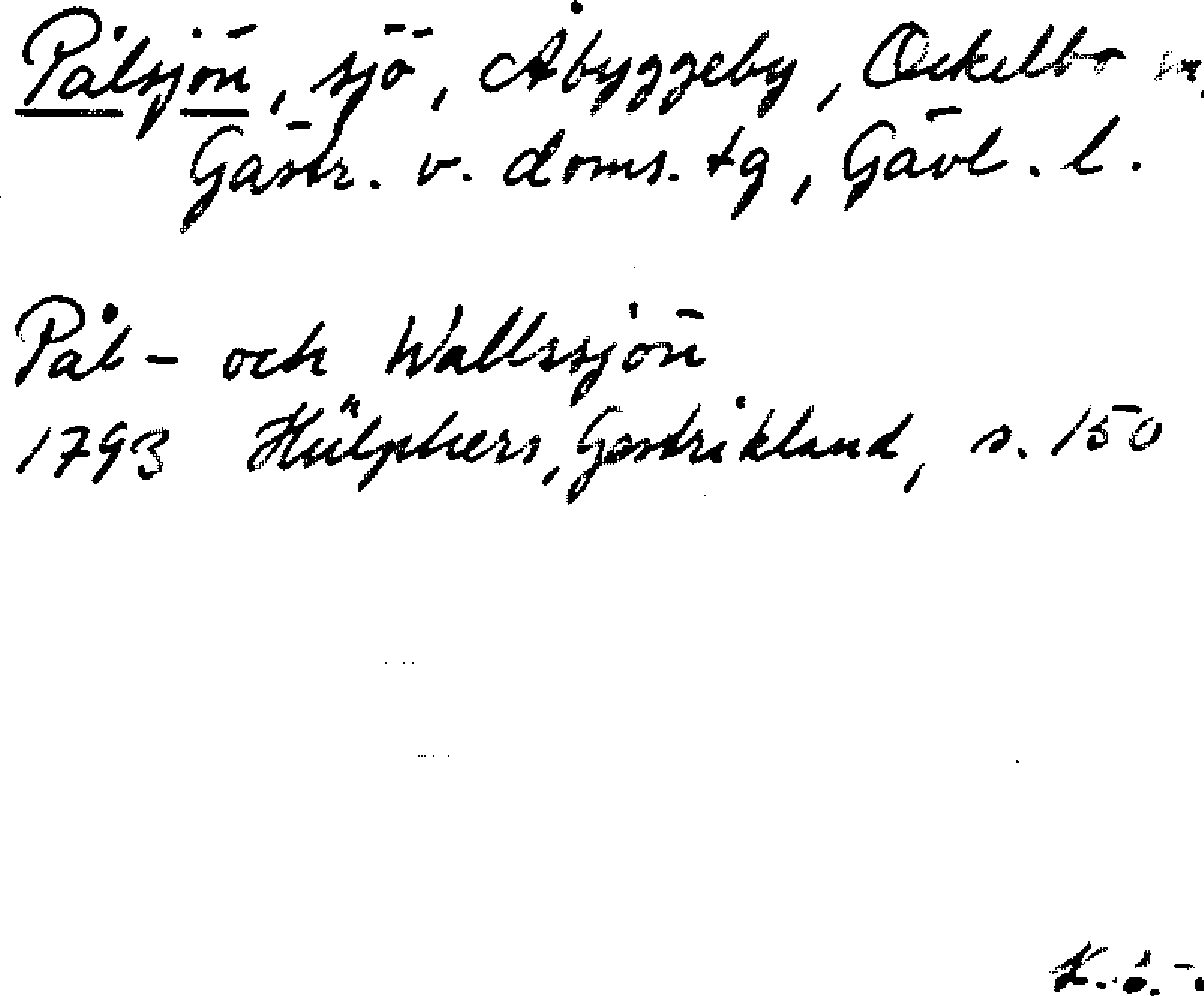 Pålsjön, sjö, Åbyggeby, Ockelbo
Gästr. v. doms. tg, Gävl. l.
Pål- och Wallssjön
1793 Hülphers, Gestrikland, s. 150